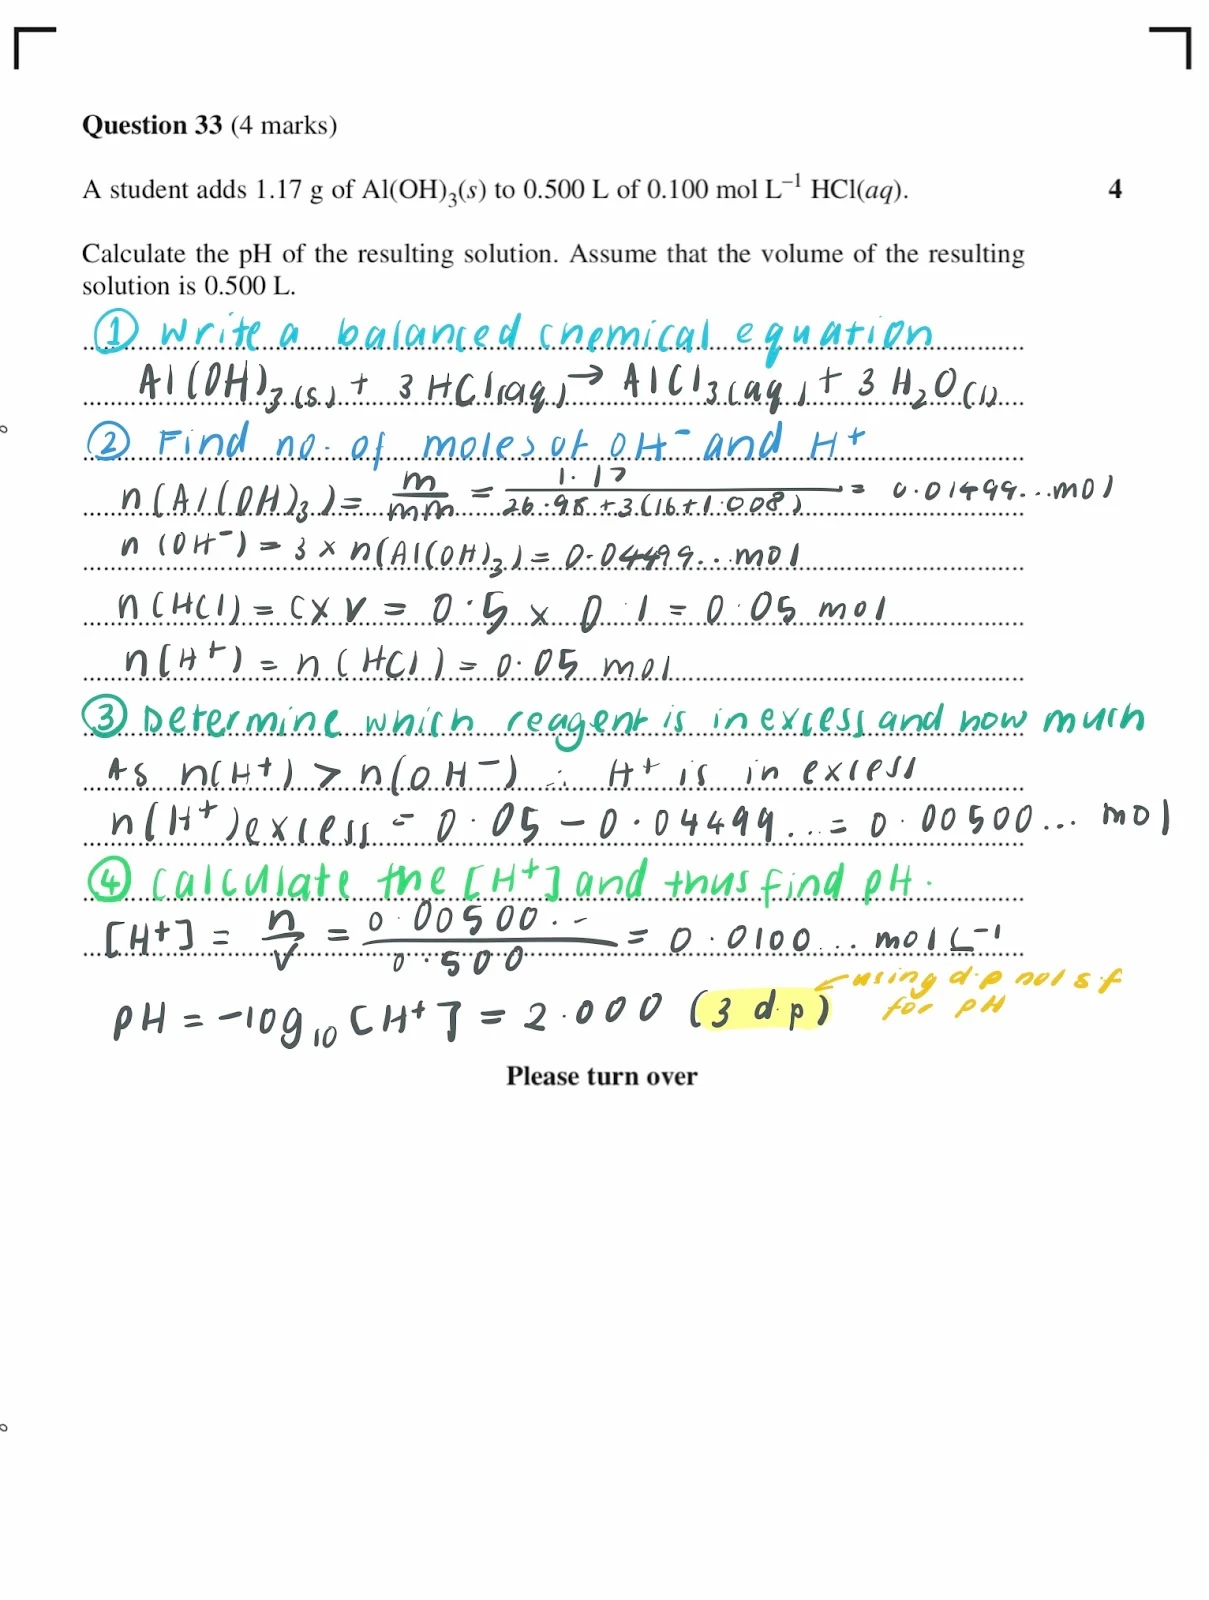 Question 33 (4 marks)
A student adds 1.17 g of Al(OH)₃(s) to 0.500 L of 0.100 mol L⁻¹ HCl(aq). 4
Calculate the pH of the resulting solution. Assume that the volume of the resulting
solution is 0.500 L.
① Write a balanced chemical equation
Al(OH)₃(s) + 3 HCl(aq) → AlCl₃(aq) + 3 H₂O(l)
② Find no. of moles of OH⁻ and H⁺
n(Al(OH)₃) = m/mm = 1.17/26.98 + 3(16+1.008) = 0.01499...mol
n(OH⁻) = 3 × n(Al(OH)₃) = 0.04499...mol
n(HCl) = c × v = 0.5 × 0.1 = 0.05 mol
n(H⁺) = n(HCl) = 0.05 mol
③ Determine which reagent is in excess and how much
As n(H⁺) > n(OH⁻) ∴ H⁺ is in excess
n(H⁺)excess = 0.05 − 0.04499... = 0.00500... mol
④ Calculate the [H⁺] and thus find pH.
[H⁺] = n/v = 0.00500.../0.500 = 0.0100... mol L⁻¹
pH = −log₁₀ [H⁺] = 2.000 (3 d.p) ← using d.p not s.f
for pH
Please turn over